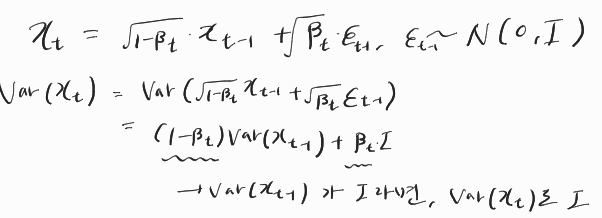 x_t = √(1-β_t) · x_{t-1} + √β_t · ε_{t-1}, ε_{t-1} ~ N(0, I)
Var(x_t) = Var(√(1-β_t) x_{t-1} + √β_t ε_{t-1})
= (1-β_t)Var(x_{t-1}) + β_t · I
→ Var(x_{t-1})가 I라면, Var(x_t)도 I